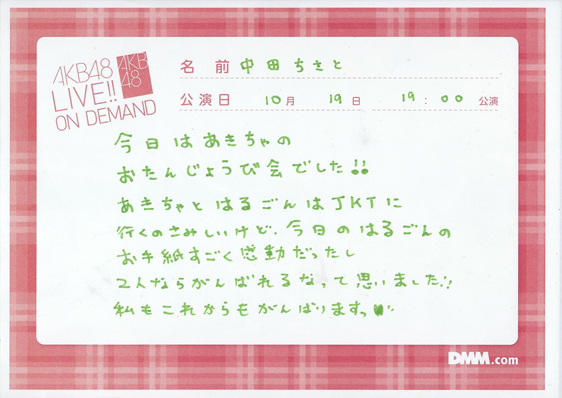 AKB48
LIVE!!
ON DEMAND
AKB
48
名前 中田ちさと
公演日 10月 19日 19:00 公演
今日はあきちゃの
おたんじょうび会でした!!
あきちゃとはるごんはJKTに
行くのさみしいけど、今日のはるごんの
お手紙すごく感動だったし
2人ならがんばれるなって思いました!!
私もこれからもがんばりますっ♥
DMM.com